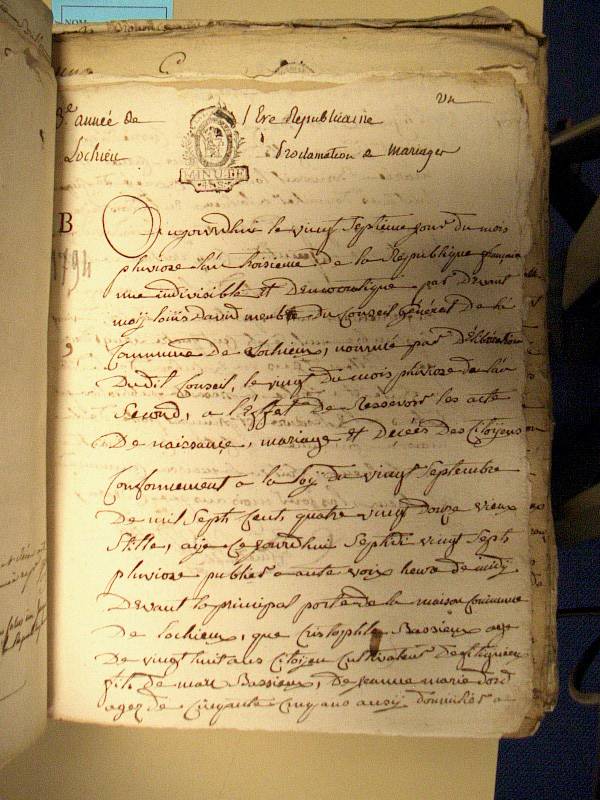 NOM
un
3.e année de l Ere Republicaine
Lochieu Proclamation de Mariages
MINUTE
B
1794
Aujourdhui le vingt Septieme jour du mois
pluviose l'an troisieme de la Republique française
une indivisible et Democratique, par devant
moy loüis david membre du Conseil général de la
Commune de Lochieux, nommé par Déliberation
Dudit Conseil, le vingt du mois pluviose de l'an
Second, a l'Effet de Ressevoir les acte
De naissance, mariage et Décées des Citoyens
Conformement a la loy du vingt Septembre
De mil Sept Cent quatre vingt douze vieux
Stille, aije Ce jourdhui Septidi vingt Sept
pluviose publies a aute voix heure de midy
Devant la principal porte de la maison Commune
De Lochieux, que Cristophle Bassieux age
De vingt huit ans Citoyen Cultivateur de
fils de marc Bassieux, De jeanne marie
agez de Cinquante Cinq ans aussy domicilies a